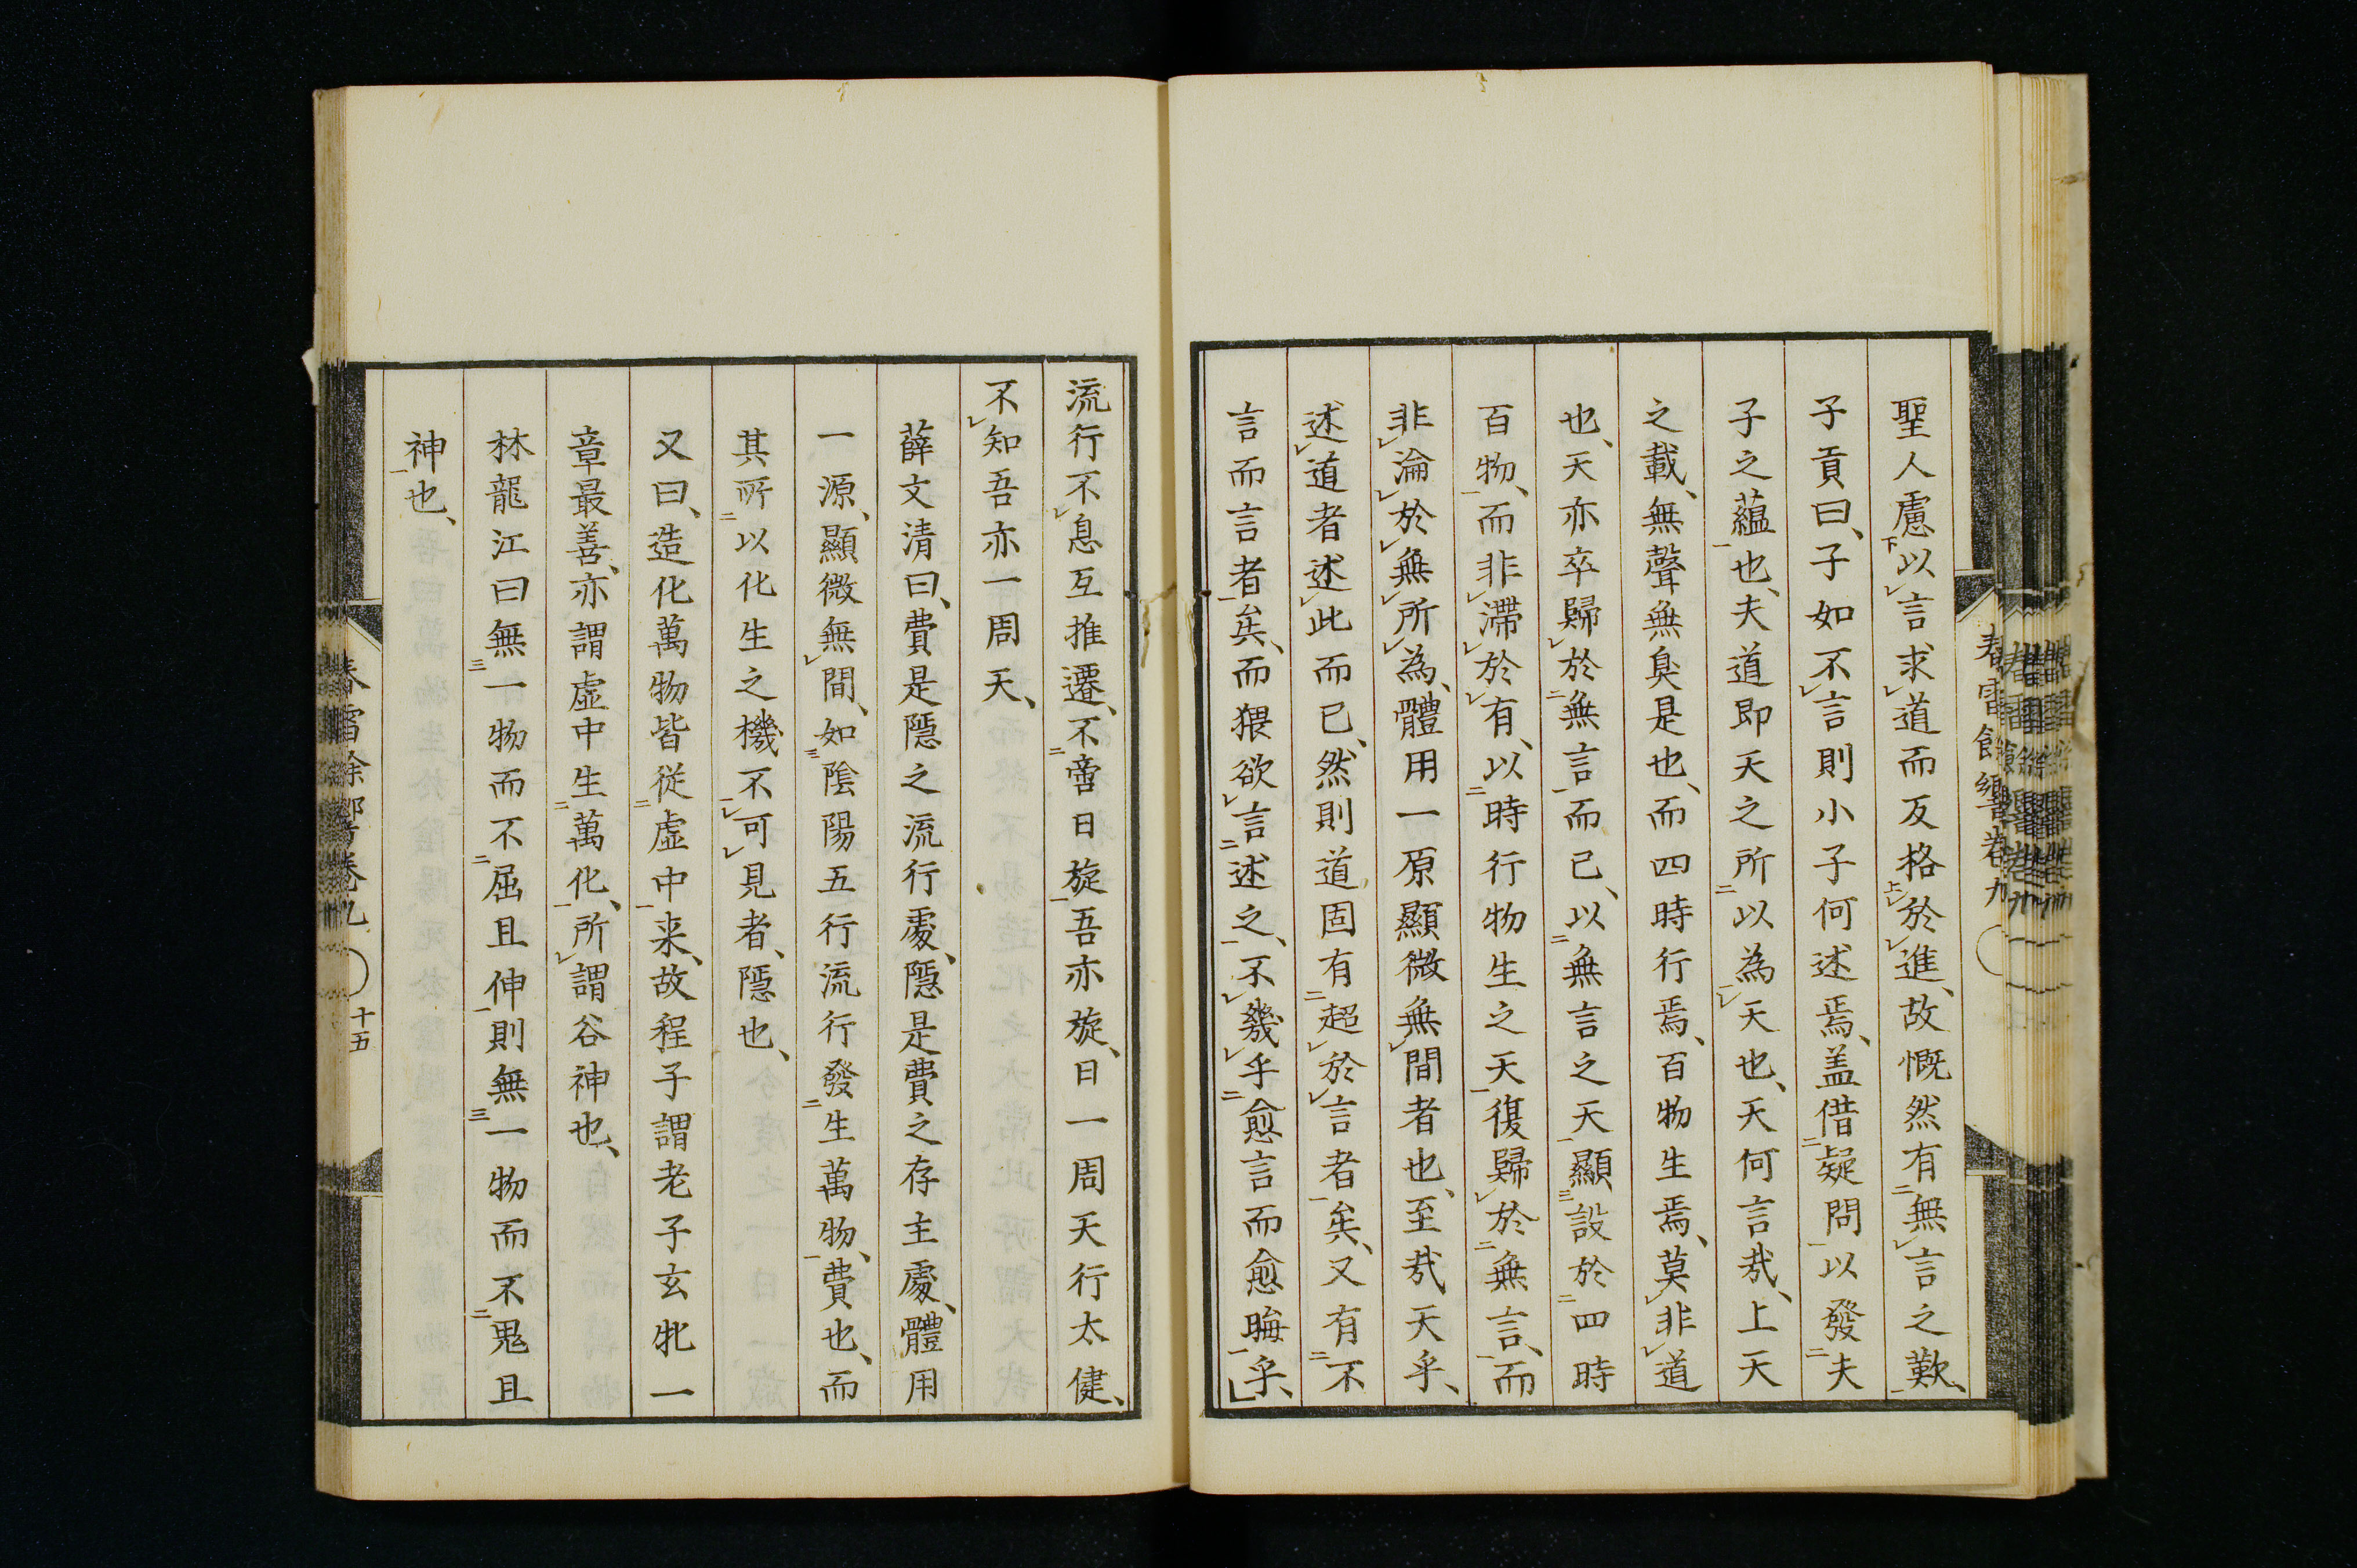 聖人慮以言求道而反格於進、故慨然有無言之歎、
子貢曰、子如不言則小子何述焉、盖借疑問以發夫
子之蘊也、夫道即天之所以為天也、天何言哉、上天
之載、無聲無臭是也、而四時行焉、百物生焉、莫非道
也、天亦卒歸於無言而已、以無言之天顯設於四時
百物、而非滯於有、以時行物生之天復歸於無言、而
非淪於無所為、體用一原顯微無間者也、至哉天乎、
述道者述此而已、然則道固有超於言者矣、又有不
言而言者矣、而猥欲言述之、不幾乎愈言而愈晦乎、
春雷餘響卷九
流行不息互推遷、不啻日旋吾亦旋、日一周天行太健、
不知吾亦一周天、
薛文清曰、費是隱之流行處、隱是費之存主處、體用
一源、顯微無間、如陰陽五行流行發生萬物、費也、而
其所以化生之機不可見者、隱也、
又曰、造化萬物皆從虛中来、故程子謂老子玄牝一
章最善、亦謂虛中生萬化、所謂谷神也、
林龍江曰無一物而不屈且伸則無一物而不鬼且
神也、
春雷餘響卷九
十五